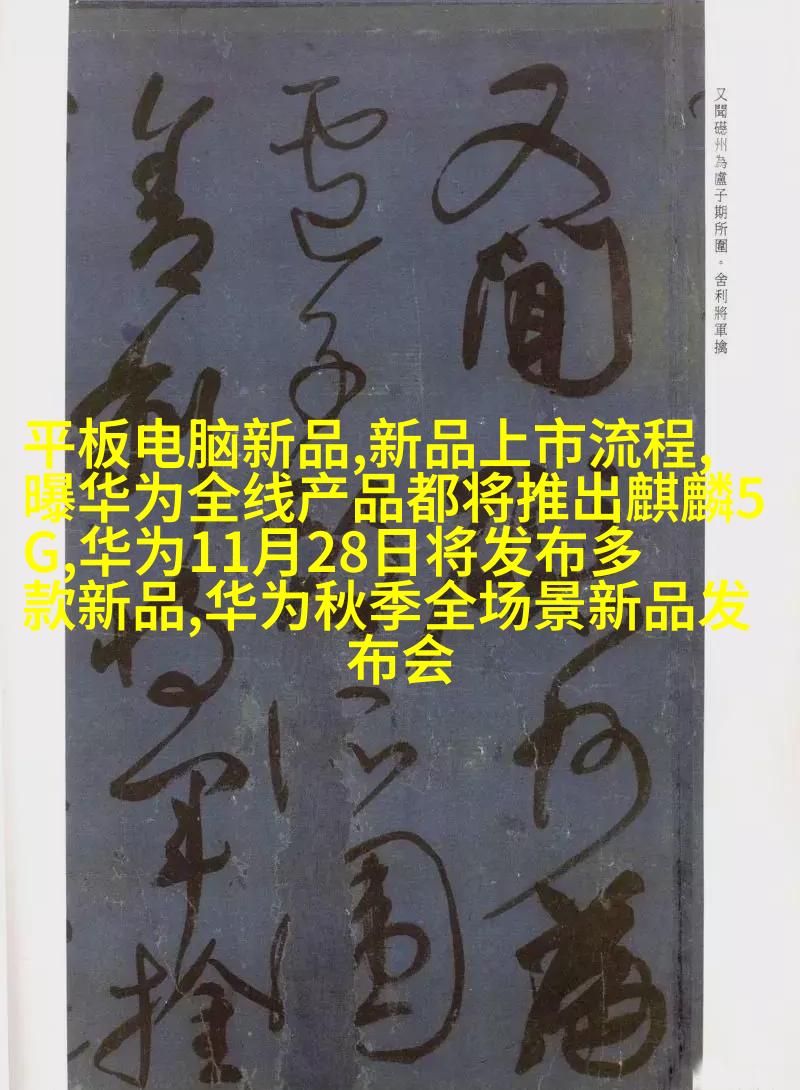 又聞磁州為盧子期所圍。舍利將軍擒
又聞
磁州為
盧子期
所圍
舍利
將軍擒
平板电脑新品,新品上市流程,
曝华为全线产品都将推出麒麟5
G,华为11月28日将发布多
款新品,华为秋季全场景新品发
布会